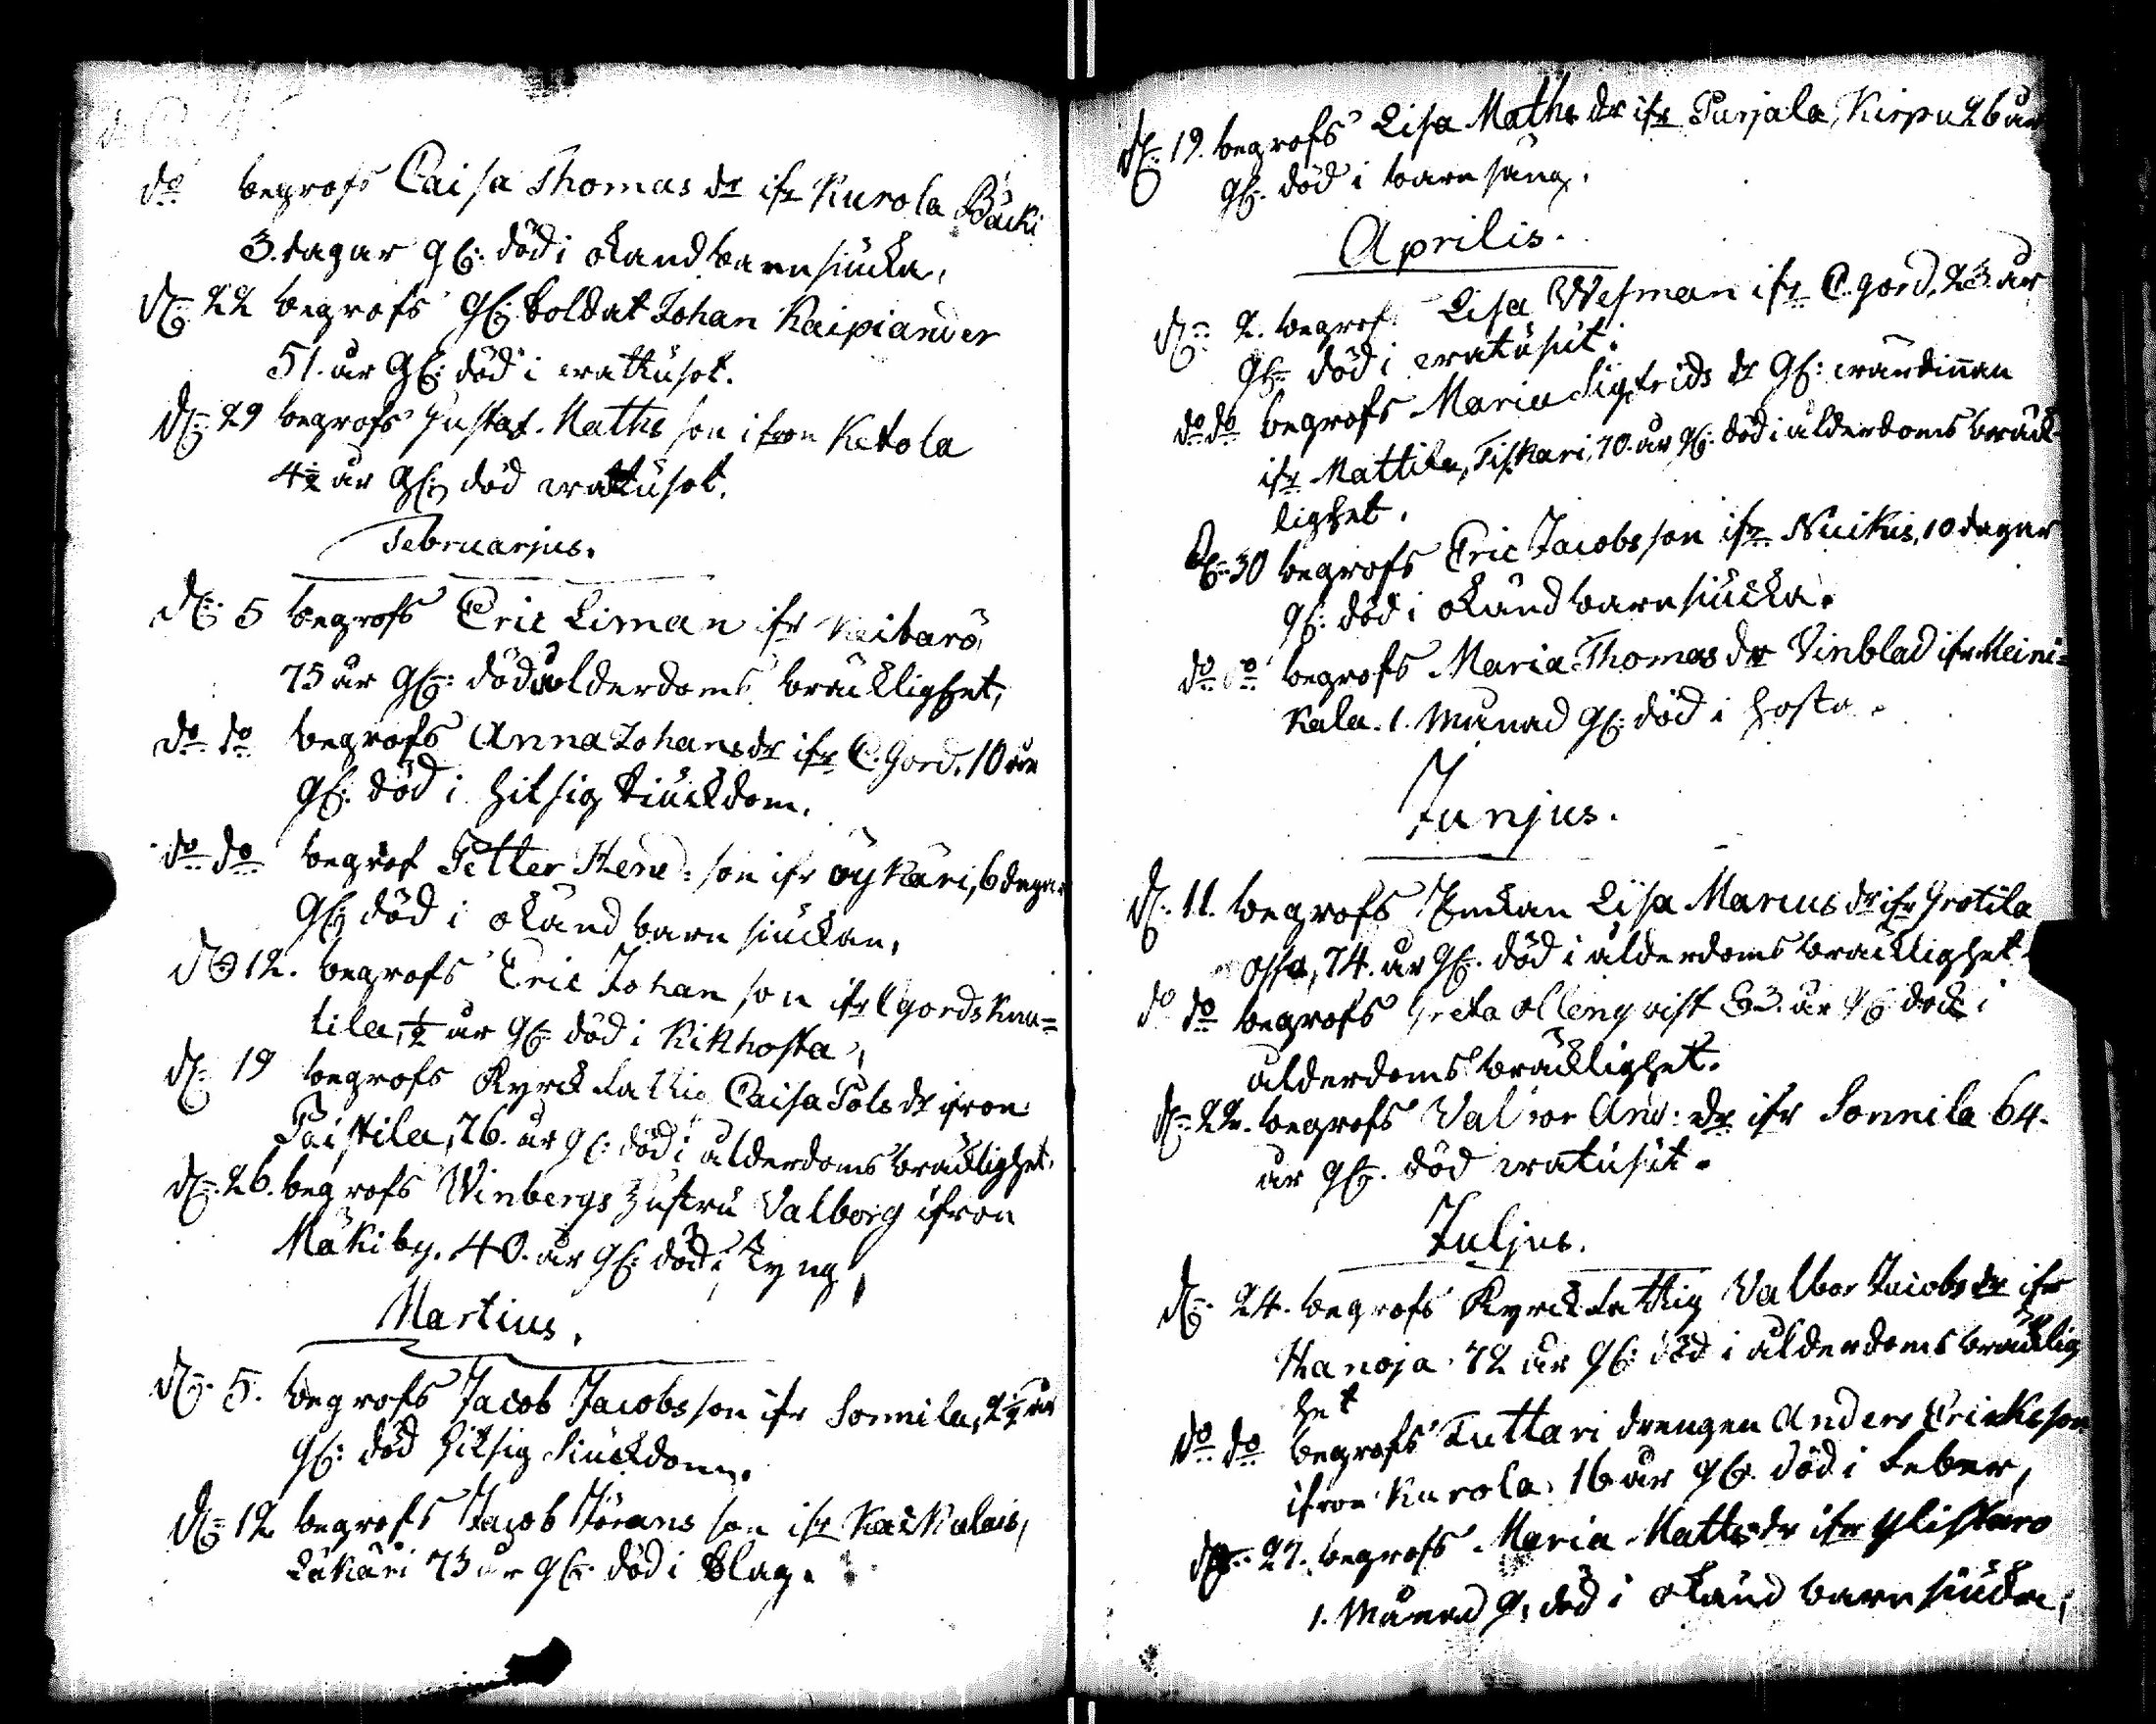 do begrofs Caisa Thomas dr ifr Kurola Bäcki
3. dagar gl: död i okand barnsiucka,
d: 22 begrofs gl: Soldat Johan Kaipiander
51. år gl: död i wattusot.
d: 29 begrofs Gustaf Maths son ifron Ketola
4½ år gl: död wattusot.
Februarjus.
d: 5 begrofs Eric Liman ifr Keibarö
75 år gl: död ålderdoms bräcklighet,
do do begrofs Anna Johans dr ifr C. gord, 10 år
gl: död i hitsig siuckdom.
do do begrof Petter Hend: son ifr öykäri, 6 dagar
gl: död i okänd barn siuckan,
d: 12. begrofs Eric Johan son ifr Cgords Knu=
tila, ½ år gl: död i Kikhosta,
d: 19 begrofs Kyrck fattig Caisa Påls dr ifron
Paistila, 76. år gl: död i ålderdoms bräcklighet.
d: 26. begrofs Winbergs hustru Valborg ifron
Mäkiby. 40. år gl: död i styng,
Martius.
d: 5. begrofs Jacob Jacobs son ifr Sonnila, 2½ år
gl: död hitsig siuckdom.
d: 12 begrofs Jacob Jörans son ifr Kackulais,
Läkäri 73 år gl: död i slag.
d: 19. begrofs Lisa Maths dr ifr Purjala, Kirpu 26 år
gl: död i barn säng.
Aprilis.
d: 2. begrof: Lisa Wesman ifr C. gord, 23. år
gl: död i watusut.
do do begrofs Maria Sigfrids dr gl: wärdinnan
ifr Mattila, Tiskari, 70. år gl: död i ålderdoms bräck
lighet.
d: 30 begrofs Eric Jacobs son ifr Nuikus, 10 dagar
gl: död i okänd barnsiucka.
do do begrofs Maria Thomas dr Vinblad ifr Meini=
kala. 1. Månad gl: död i hosta.
Junjus.
d: 11. begrofs Enckan Lisa Marcus dr ifr Grotila
ossa, 74. år gl: död i ålderdoms bräcklighet.
do do begrofs Greta ollengvist 83. år gl: död i
ålderdoms bräcklighet.
d: 22. begrofs Valbor And: dr ifr Sonnila 64.
år gl: död watusut.
Juljus.
d: 24. begrofs Kyrck fattig Valbor Jacobs dr ifr
Hanoja. 72 år gl: död i ålderdoms bräcklig
het
do do begrofs Luttari drengen Anders Ericks son
ifron Kurola, 16 år gl: död i feber,
d: 27. begrofs Maria Matts dr ifr ylistaro
1. Månad g. död i okänd barnsiucka,